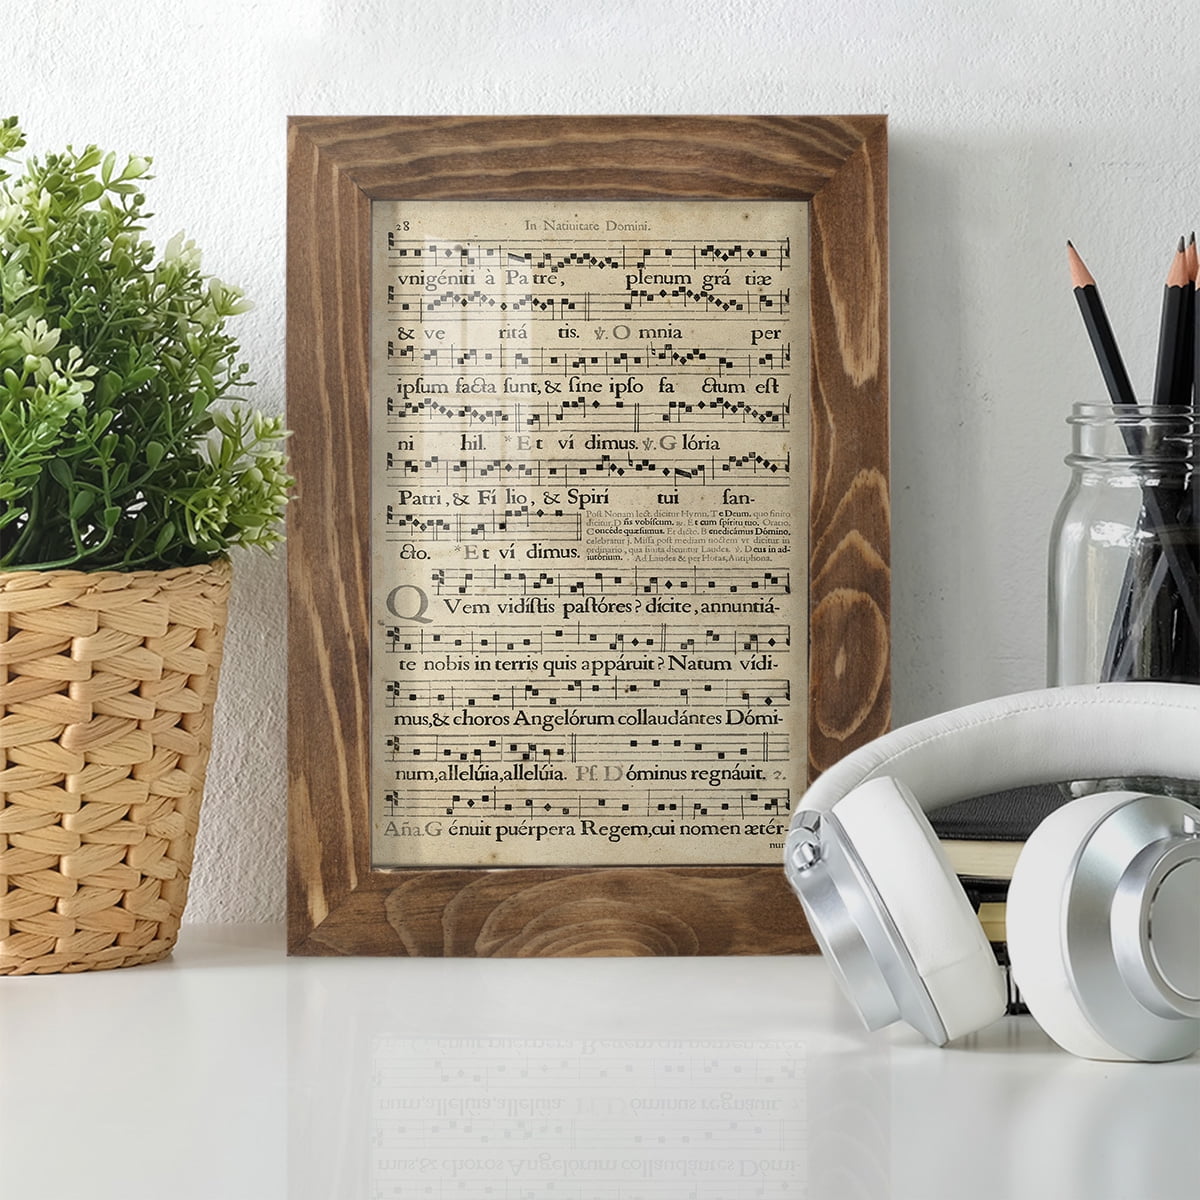 28 In Natiuitate Domini.
vnigéniti à Patre, plenum grá tiæ
& ve ritá tis. ℣. O mnia per
ipſum facta ſunt, & ſine ipſo fa ctum eſt
ni hil. * Et ví dimus. ℣. G lória
Patri, & Fí lio, & Spirí tui ſan-
cto. * Et ví dimus.
Poſt Nonam lect. dicitur Hymn. Te Deum, quo finito
dicitur, D ñs vobiſcum. ℟. Et cum ſpíritu tuo. Oratio,
Concéde quæſumus. Et dicto, B enedicámus Dómino,
celebratur j. Miſſa poſt mediam noctem vt dicitur in
ordinario, qua finita dicuntur Laudes. ℣. Deus in ad-
iutórium. Ad Laudes & per Horas, Antiphona.
Q Vem vidíſtis paſtóres? dícite, annuntiá-
te nobis in terris quis appáruit? Natum vídi-
mus, & choros Angelórum collaudántes Dómi-
num, allelúia, allelúia. Pſ. Dóminus regnáuit. 2.
Aña. G énuit puérpera Regem, cui nomen ætér-
num